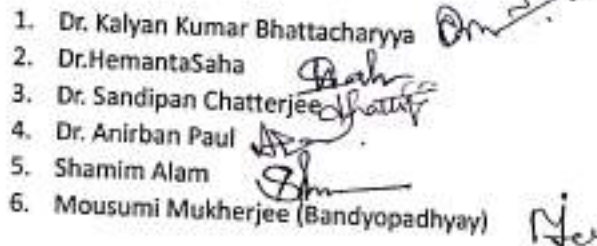 1. Dr. Kalyan Kumar Bhattacharyya
2. Dr.HemantaSaha
3. Dr. Sandipan Chatterjee
4. Dr. Anirban Paul
5. Shamim Alam
6. Mousumi Mukherjee (Bandyopadhyay)